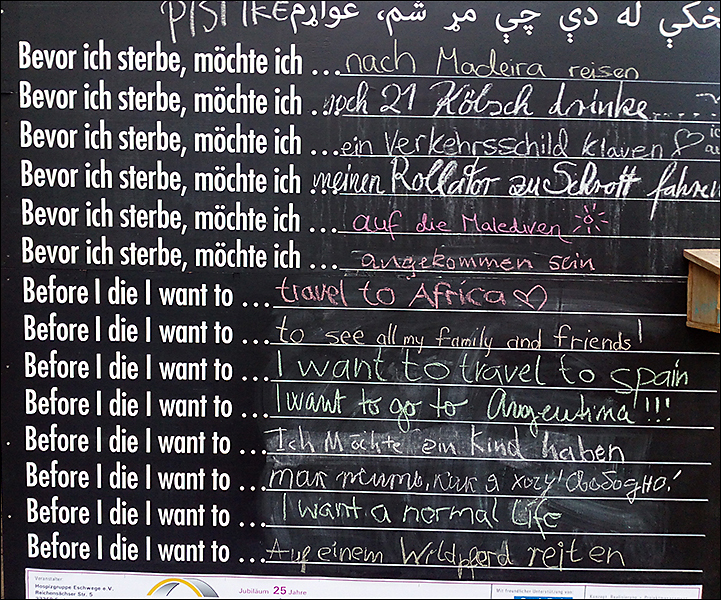 PISTIKE ځکې له دې چې مړ شم، غواړم
Bevor ich sterbe, möchte ich ... nach Madeira reisen
Bevor ich sterbe, möchte ich ... noch 21 Kölsch drinke....
Bevor ich sterbe, möchte ich ... ein Verkehrsschild klauen ♡
Bevor ich sterbe, möchte ich ... meinen Rollator zu Schrott fahren
Bevor ich sterbe, möchte ich ... auf die Malediven
Bevor ich sterbe, möchte ich ... angekommen sein
Before I die I want to ... travel to Africa ♡
Before I die I want to ... to see all my family and friends!
Before I die I want to ... I want to travel to spain
Before I die I want to ... I want to go to Argentina!!!
Before I die I want to ... Ich Möchte ein Kind haben
Before I die I want to ... так жить, как я хочу! Свободна!
Before I die I want to ... I want a normal life
Before I die I want to ... Auf einem Wildpferd reiten
Veranstalter:
Hospizgruppe Eschwege e.V.
Reichensächser Str. 5
Jubiläum 25 Jahre
Mit freundlicher Unterstützung von: